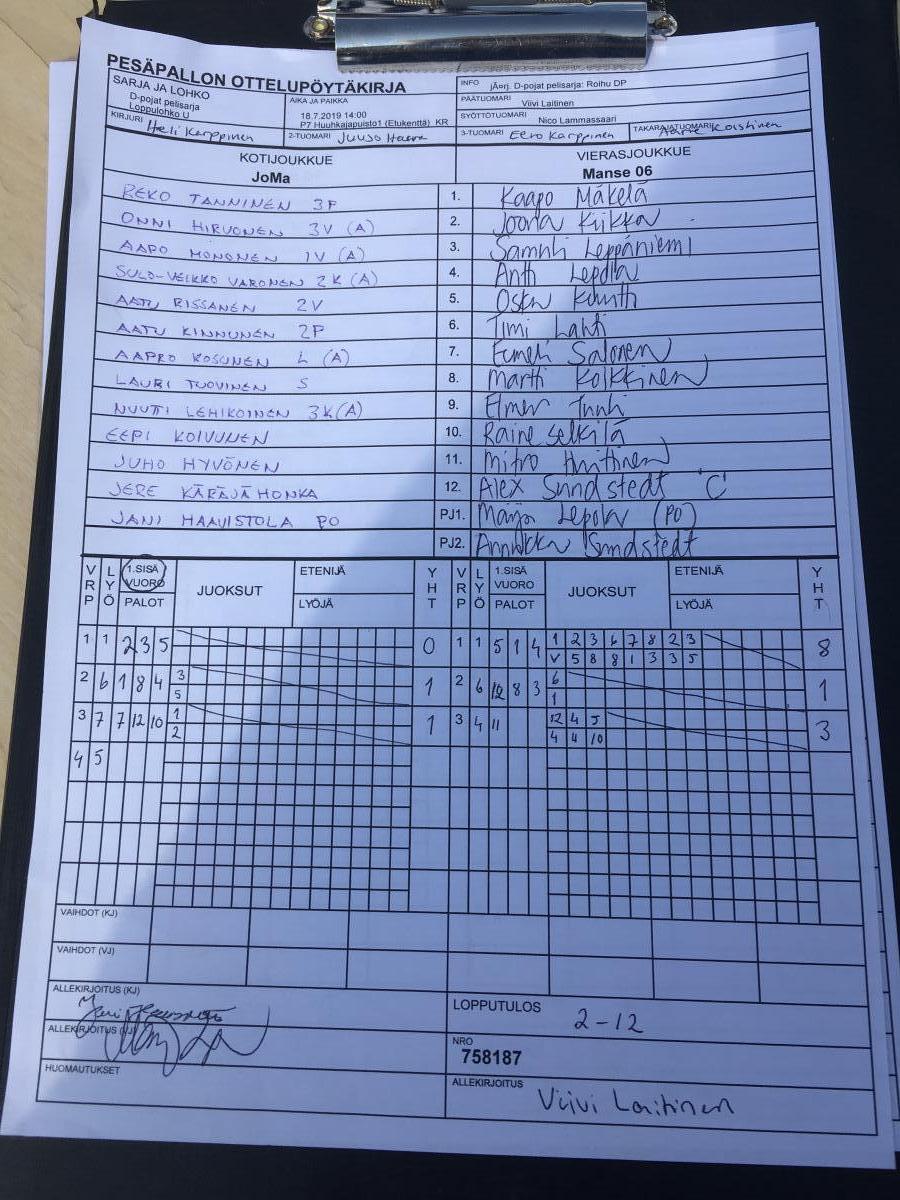 PESÄPALLON OTTELUPÖYTÄKIRJA
SARJA JA LOHKO
D-pojat pelisarja
Loppulohko U
AIKA JA PAIKKA
18.7.2019 14:00
P7 Huuhkajapuisto1 (Etukenttä) KR
INFO jÄørj. D-pojat pelisarja: Roihu DP
PÄÄTUOMARI Viivi Laitinen
SYÖTTÖTUOMARI Nico Lammassaari
KIRJURI Heli Karppinen
2-TUOMARI Juuso
3-TUOMARI Eero Karppinen
TAKARAJATUOMARI Koistinen
KOTIJOUKKUE
JoMa
VIERASJOUKKUE
Manse 06
REKO TANNINEN 3P 1. Kaapo Mäkelä
ONNI HIRVONEN 3V (A) 2. Joona Kiikka
AAPO MONONEN 1V (A) 3. Samuli Leppäniemi
SULO-VEIKKO VARONEN 2K (A) 4. Antti Lepola
AATU RISSANEN 2V 5.
AATU KINNUNEN 2P 6. Timi Lahti
AAPRO KOSUNEN L (A) 7. Eemeli Salonen
LAURI TUOVINEN S 8. Martti Kolkkinen
NUUTTI LEHIKOINEN 3K (A) 9. Elmer
EEPI KOIVUNEN 10. Raine Selkilä
JUHO HYVÖNEN 11. Mitro
JERE KÄRÄJÄHONKA 12. Alex Sundstedt "C"
JANI HAAVISTOLA PO PJ1. Maija Lepola (PO)
PJ2. Annukka Sundstedt
VRP LYÖ 1.SISÄ VUORO PALOT JUOKSUT ETENIJÄ LYÖJÄ YHT VRP LYÖ 1.SISÄ VUORO PALOT JUOKSUT ETENIJÄ LYÖJÄ YHT
1 1 2 3 5 0 1 1 5 1 4 1 2 3 6 7 8 2 3 8
V 5 8 8 1 3 3 5
2 6 1 8 4 3 1 2 6 12 8 3 6 1
5 1
3 7 7 12 10 1 1 3 4 11 12 4 5 3
2 4 4 10
4 5
VAIHDOT (KJ)
VAIHDOT (VJ)
ALLEKIRJOITUS (KJ)
ALLEKIRJOITUS (VJ)
HUOMAUTUKSET
LOPPUTULOS 2-12
NRO
758187
ALLEKIRJOITUS
Viivi Laitinen